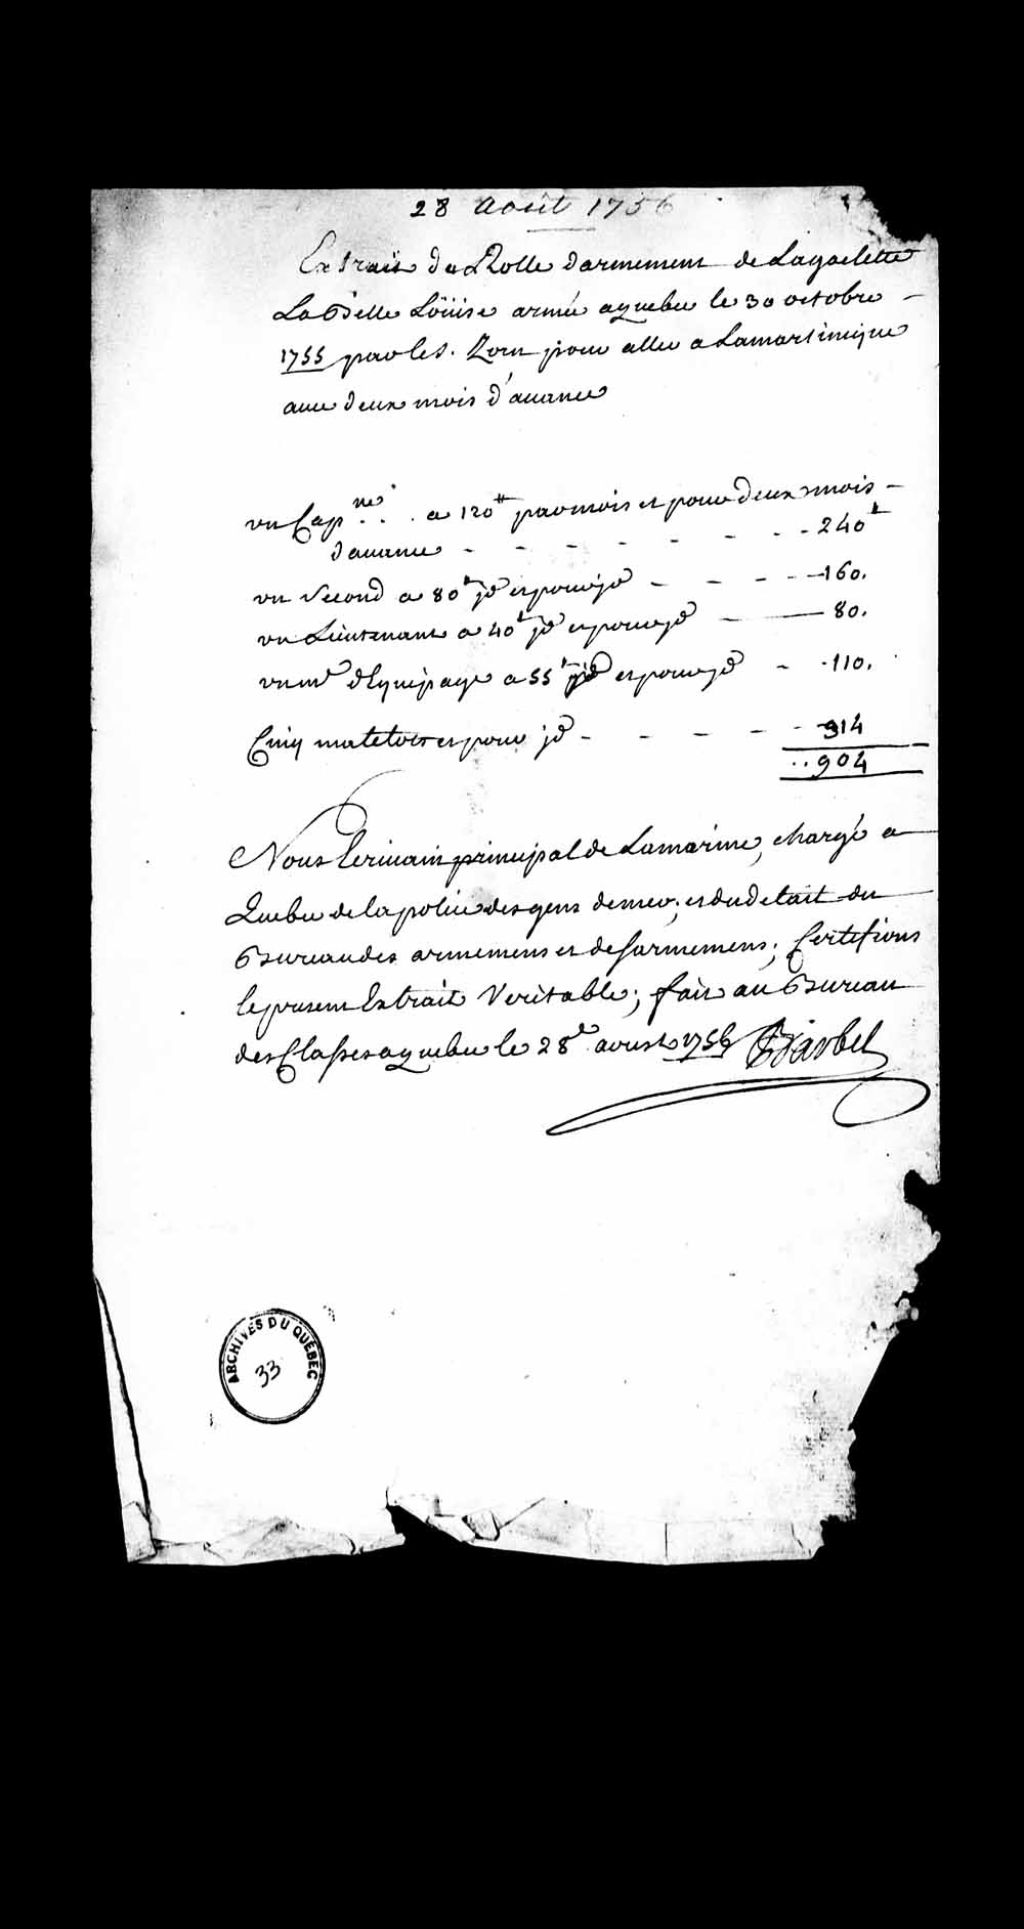 28 Août 1756
Extrait du Rolle darmement de Lagoelette
La Belle Loüise armée a quebec le 30 octobre
1755 par les. Zorn pour aller a Lamartinique
avec deux mois d'avance
un Cap.ne . . a 120# par mois et pour deux mois
davance - - - - - - - 240#
un Second a 80# jd et pour jd - - - - 160.
un Lieutenant a 40# jd et pour jd - 80.
un me dEquipage a 55# jd et pour jd - 110.
Cinq matelots et pour jd - - - - 314
. . 904
Nous Ecrivain principal de Lamarine, chargé a
Quebec de la police des gens de mer; et du detail du
Bureau des armemens et desarmemens; Certifions
le present Extrait Veritable; fait au Bureau
des Classes a quebec le 28e aoust 1756 Barbel
ARCHIVES DU QUÉBEC
33